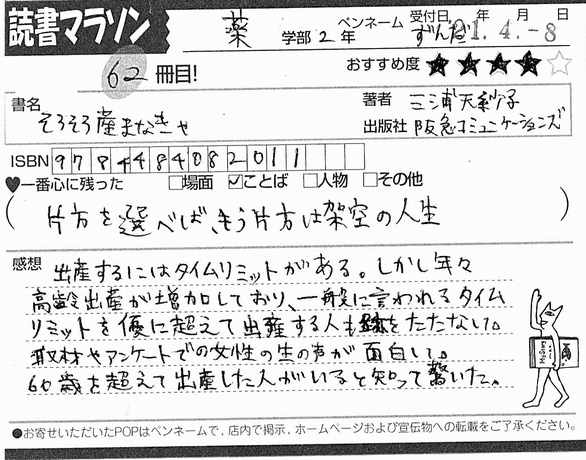 読書マラソン
薬 学部 2 年
ペンネーム ずんだ
受付日 年 月 日
'21.4.-8
62 冊目!
おすすめ度 ★★★★☆
書名 そろそろ産まなきゃ
著者 三浦天紗子
出版社 阪急コミュニケーションズ
ISBN 9784484082011
♥一番心に残った □場面 ☑ことば □人物 □その他
(片方を選べば、もう片方は架空の人生)
感想 出産するにはタイムリミットがある。しかし年々
高齢出産が増加しており、一般に言われるタイム
リミットを優に超えて出産する人も跡をたたない。
取材やアンケートでの女性の生の声が面白い。
60歳を超えて出産した人がいると知って驚いた。
●お寄せいただいたPOPはペンネームで、店内で掲示、ホームページおよび宣伝物への転載をご了承ください。